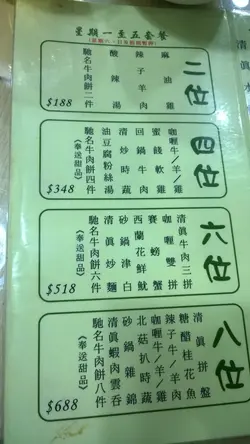 星期一至五套餐
(星期六、日及假期暫停)
二位
麻油雞
辣子羊肉
酸辣湯
馳名牛肉餅二件
$188
四位
咖喱牛/羊/雞
蜜餞軟雞
回鍋牛肉
清炒時蔬
油豆腐粉絲湯
馳名牛肉餅四件
(奉送甜品)
$348
六位
清真牛肉三拼
咖喱雙拼
賽螃蟹
西蘭花鮮魷
砂鍋津白
清真炒麵
馳名牛肉餅六件
(奉送甜品)
$518
八位
清真拼盤
糖醋桂花魚
辣子牛/羊肉
咖喱牛/羊/雞
北菇扒時蔬
砂鍋雜錦
清真蝦肉雲吞
馳名牛肉餅八件
(奉送甜品)
$688